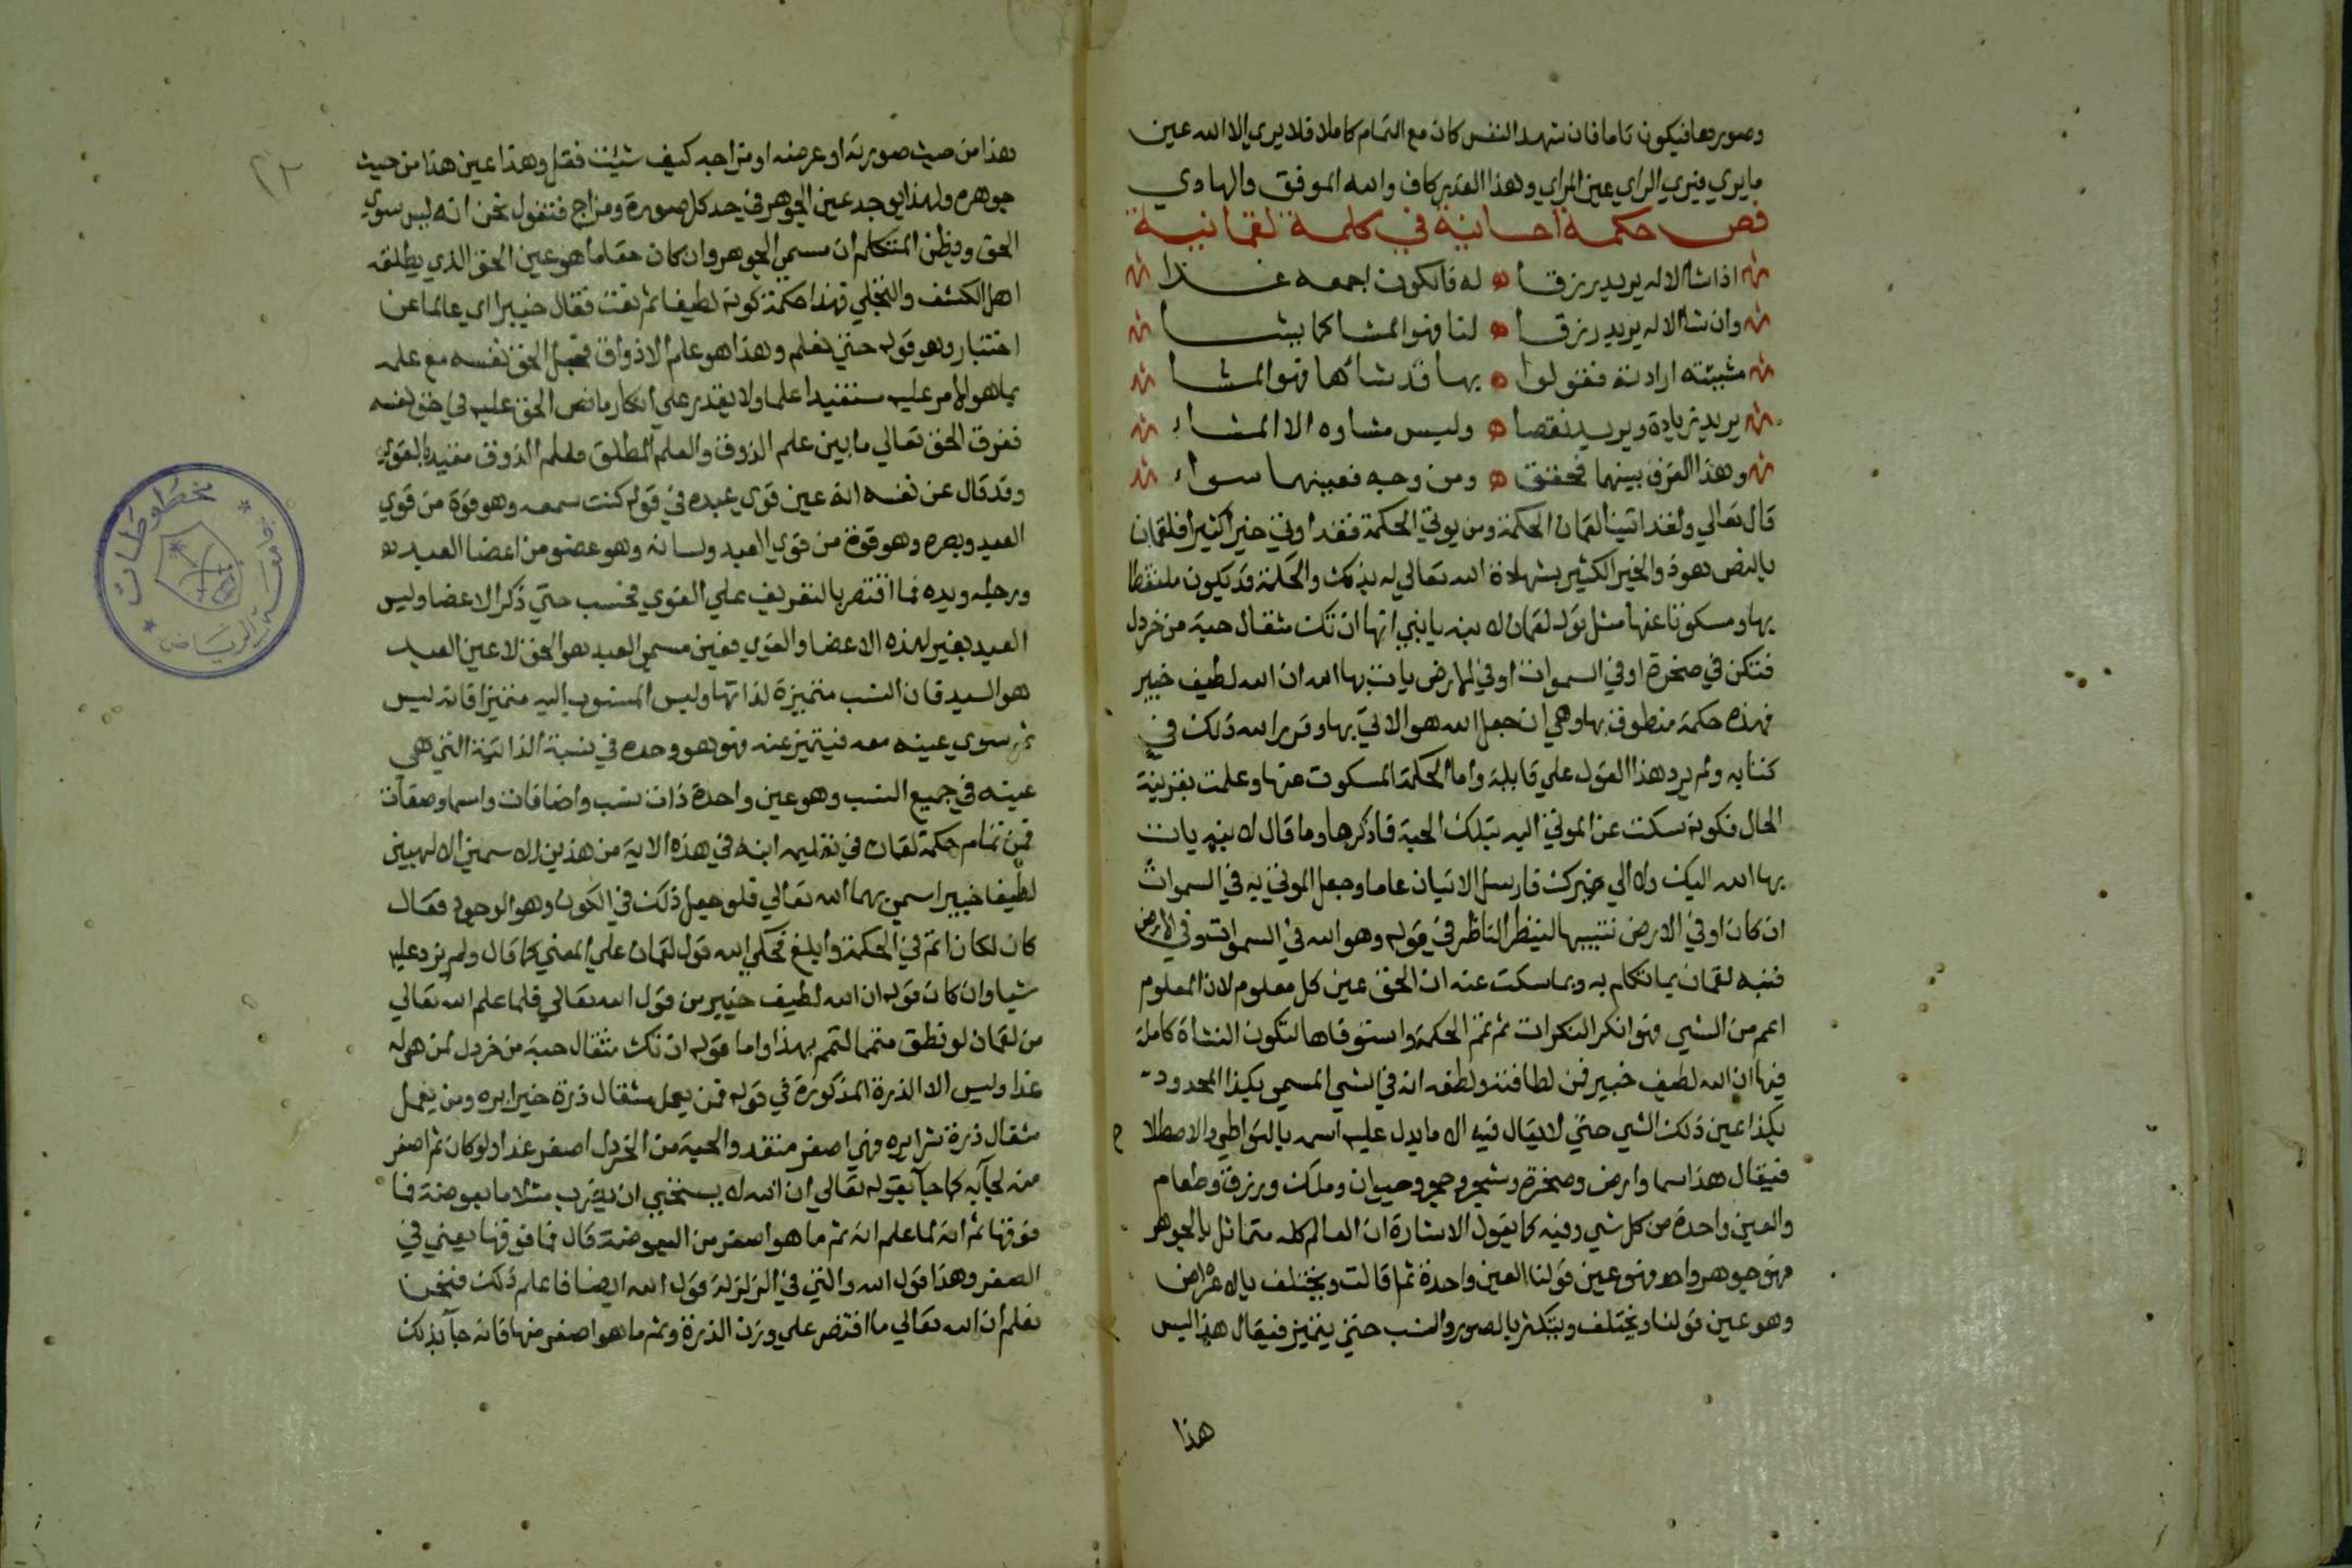 وصورها فيكون تاما فان شهد النفس كان مع التمام كاملا فلا يري الا الله عين
ما يري فيري الراي عين المراي وهذا القدر كاف والله الموفق والهادي
فص حكمة احسانية في كلمة لقمانية
اذا شاالاله يريد رزقا له فالكون اجمعه غذا
وان شاالاله يريد رزقا لنا فهو الغذا كما يشا
مشيئته ارادته فقولوا بها قد شاءها فهو المشا
يريد زيادة ويريد نقصا وليس مشاوه الا المشاء
وهذا الفرق بينهما فحقق ومن وجه فعينهما سواء
قال تعالي ولقد اتينا لقمان الحكمة ومن يوتي الحكمة فقد اوتي خيرا كثيرا فلقمان
بالنص هو ذو الخير الكثير بشهادة الله تعالي له بذلك والحكمة قد تكون ملتفظا
بها ومسكوتا عنها مثل قول لقمان لابنه يا بني انها ان تك مثقال حبة من خردل
فتكن في صخرة او في السموات او في الارض يات بها الله ان الله لطيف خبير
فهذه حكمة منطوق بها وهي ان جعل الله هو الاتي بها وقرر الله ذلك في
كتابه ولم يرد هذا القول علي قايله واما الحكمة المسكوت عنها وعلمت بقرينة
الحال فكونه سكت عن الموتي اليه بتلك الحبة فما ذكرها وما قال لابنه يات
بها الله اليك ولا الي غيرك فارسل الاتيان عاما وجعل الموتي به في السموات
ان كان او في الارض تنبيها لينظر الناظر في قوله وهو الله في السموات وفي الارض
فنبه لقمان بما تكلم به وبما سكت عنه ان الحق عين كل معلوم لان المعلوم
اعم من الشي فهو انكر النكرات ثم تمم الحكمة واستوفاها لتكون النشاة كاملة
فيها ان الله لطيف خبير فمن لطافته ولطفه انه في الشي المسمي بكذا المحدود
بكذا عين ذلك الشي حتي لا يقال فيه الا ما يدل عليه اسمه بالتواطي والاصطلا ح
فيقال هذا سما وارض وصخرة وشجر وحجر وحيوان وملك ورزق وطعام
والعين واحدة من كل شي وفيه كما يقول الاشارة ان العالم كله متماثل بالجوهر
فهو جوهر واحد فهو عين قولنا العين واحدة ثم قالت ويختلف بالاعراض
وهو عين قولنا ويختلف ويتكثر بالصور والنسب حتي يتميز فيقال هذا ليس
هذا
٢٢
هذا من حيث صورته او عرضه او مزاجه كيف شئت فقل وهذا عين هذا من حيث
جوهره ولهذا يوجد عين الجوهر في حد كل صورة ومزاج فتقول نحن انه ليس سوي
الحق ويظن المتكلم ان مسمي الجوهر وان كان حقا ما هو عين الحق الذي يطلقه
اهل الكشف والتجلي فهذا حكمة كونه لطيفا ثم نعت فقال خبيرا اي عالما عن
اختبار وهو قوله حتي نعلم وهذا هو علم الاذواق فجعل الحق نفسه مع علمه
بما هو الامر عليه مستفيدا علما ولا يقدر علي انكار ما نص الحق عليه في حق نفسه
ففرق الحق تعالي ما بين علم الذوق والعلم المطلق فعلم الذوق مقيد بالقوي
وقد قال عن نفسه انه عين قوي عبده في قوله كنت سمعه وهو قوة من قوي
العبد وبصره وهو قوة من قوي العبد ولسانه وهو عضو من اعضا العبد
ورجله ويده فما اقتصر بالتعريف علي القوي فحسب حتي ذكر الاعضا وليس
العبد بغير لهذه الاعضا والقوي فعين مسمي العبد هو الحق لا عين العبد
هو السيد فان النسب متميزة لذاتها وليس المنسوب اليه متميزا فانه ليس
ثم سوي عينه معه فيتميز عنه فهو هو وحده في نسبة الذاتية التي هي
عينه في جميع النسب وهو عين واحدة ذات نسب واضافات واسما وصفات
فمن تمام حكمة لقمان في تعليمه ابنه في هذه الاية من هذين الاسمين الالهيين
لطيفا خبيرا سمي بهما الله تعالي فلو جعل ذلك في الكون وهو الوجود فقال
كان لكان اتم في الحكمة وابلغ فحكي الله قول لقمان علي المعني كما قال ولم يزد عليه
شيا وان كان قوله ان الله لطيف خبير من قول الله تعالي فلما علم الله تعالي
من لقمان لو نطق متمما لتمم بهذا واما قوله ان تك مثقال حبة من خردل لمن هو له
غذا وليس الا الذرة المذكورة في قوله فمن يعمل مثقال ذرة خيرا يره ومن يعمل
مثقال ذرة شرا يره فهي اصغر متغذ والحبة من الخردل اصغر غذا ولو كان ثم اصغر
منه لجآ به كما جآ بقوله تعالي ان الله لا يستحي ان يضرب مثلا ما بعوضة فما
فوقها ثم انه لما علم انه ثم ما هو اصغر من البعوضة قال فما فوقها يعني في
الصغر وهذا قول الله والتي في الزلزلة قول الله ايضا فاعلم ذلك فنحن
نعلم ان الله تعالي ما اقتصر علي وزن الذرة وثم ما هو اصغر منها فانه جآ بذلك
مخطوطات
جامعة الرياض